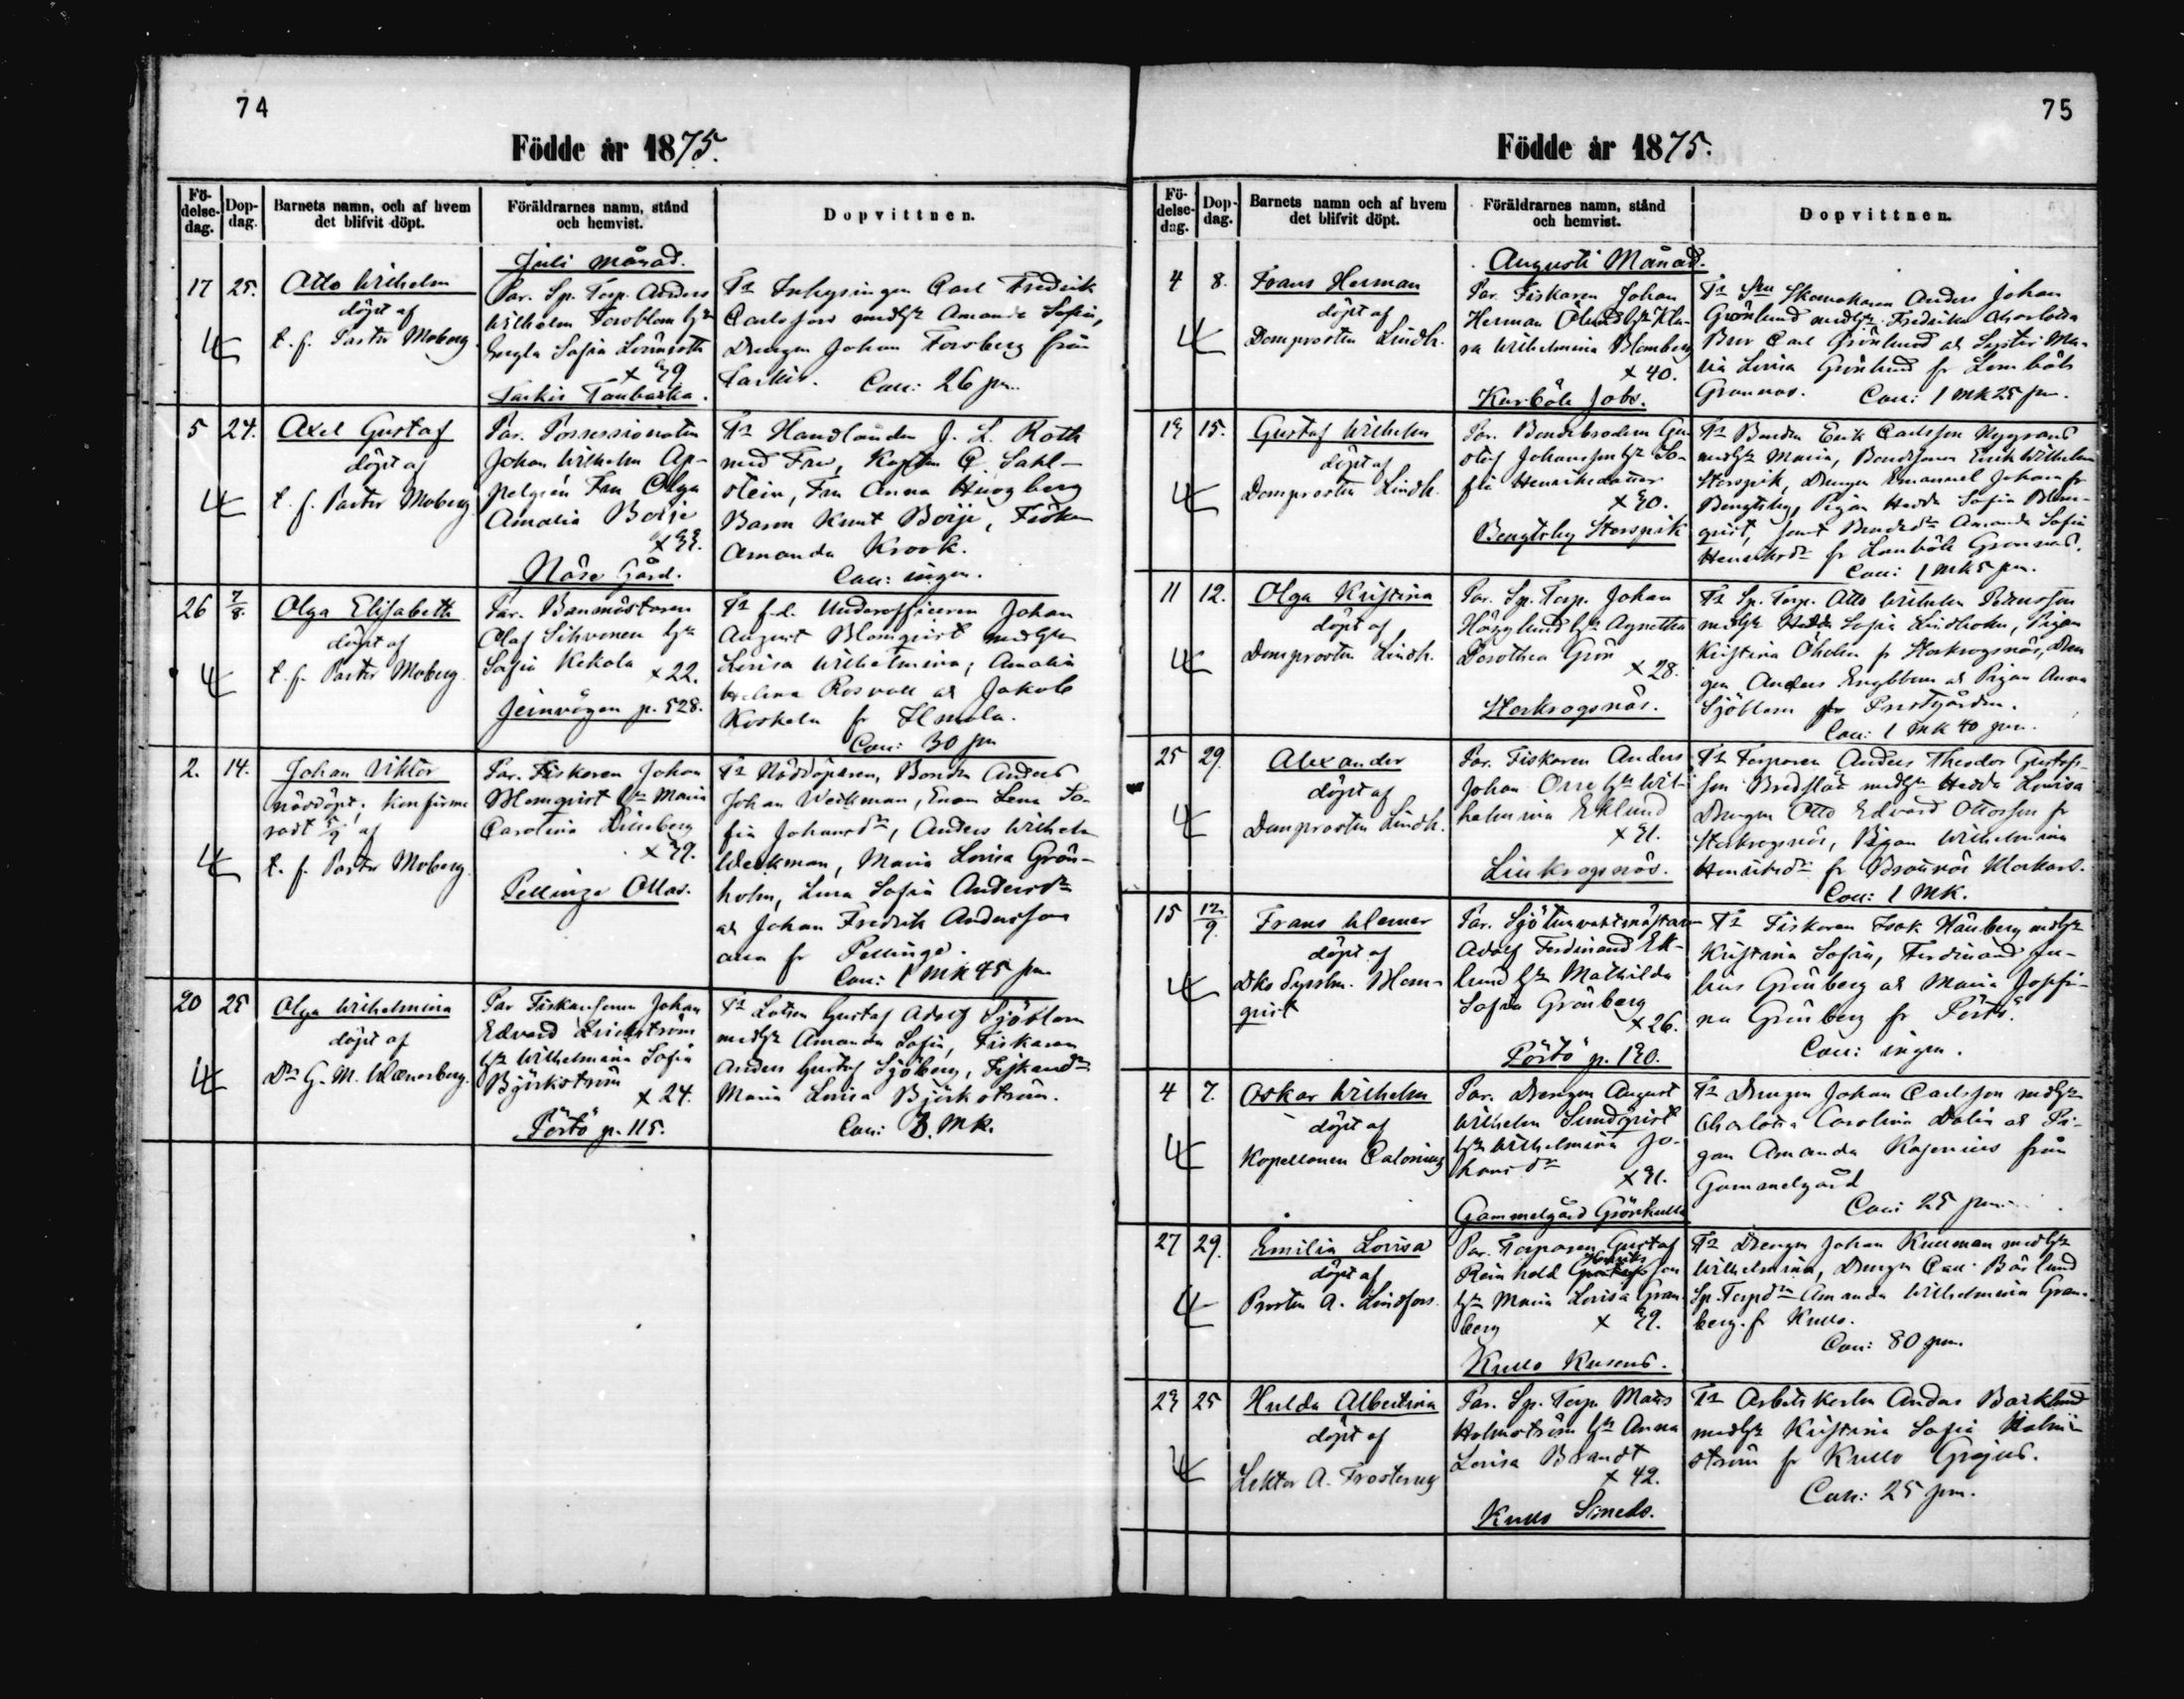 74
Födde år 1875.
Fö-
delse-
dag.
Dop-
dag.
Barnets namn, och af hvem
det blifvit döpt.
Föräldrarnes namn, stånd
och hemvist.
Dopvittnen.
Juli månad.
17 25.
Otto Wilhelm
döpt af
t. f. Pastor Moberg.
Par. Sp. Torp. Anders
Wilhelm Forsblom hst
Sofia
× 39
Tarkis
Tt Inhysingen Carl Fredrik
Carlsson medhst Amanda Sofia,
Drengen Johan Forsberg från
Tarkis. Coll: 26 pn.
5 24.
Axel Gustaf
döpt af
t. f. Pastor Moberg.
Par. Possessionaten
Johan Wilhelm Ap-
pelgrén Fru Olga
Amalia Boije
× 33.
Näse Gård.
Tt Handlanden J. L. Roth
med Fru, C. Sahl-
stein, Fru Anna
Baron Knut Boije, Fröken
Amanda Krook.
Coll: ingen.
26 7/8.
Olga Elisabeth
döpt af
t. f. Pastor Moberg.
Par. Banmästaren
Olof Sihvonen hst
Sofia Kekola × 22.
Jernvägen p. 528.
Tt f.d. Underofficeren Johan
August Blomqvist medhst
Lovisa Wilhelmina, Amalia
Helena Rosvall ah Jakob
Koskela fr
Coll: 30 pn
2. 14.
Johan Viktor
nöddöpt; konfirme
radt 5/9 af
t. f. Pastor Moberg.
Par. Fiskaren Johan
Blomqvist hst Maria
Carolina
× 39.
Pellinge Ollas.
Tt Nöddöparen, Bonden Anders
Johan Weckman, Lena So-
fia Johansdr, Anders Wilhelm
Weckman, Maria Lovisa Grön-
holm, Lena Sofia Andersdr
ah Johan Fredrik Andersson
alla fr Pellinge.
Coll: 1 mk 45 pn
20 25
Olga Wilhelmina
döpt af
Dr G. M. Waenerberg.
Par Fiskaresonen Johan
Edvard
hst Wilhelmina Sofia
Björkström
× 24.
Pörtö p. 115.
Tt Lotsen Gustaf Adolf Sjöblom
medhst Amanda Sofia, Fiskaren
Anders Gustaf Sjöberg,
Maria Lovisa Björkström.
Coll: 3. mk.
75
Födde år 1875.
Fö-
delse-
dag.
Dop-
dag.
Barnets namn och af hvem
det blifvit döpt.
Föräldrarnes namn, stånd
och hemvist.
Dopvittnen.
Augusti Månad.
4 8.
Frans Herman
döpt af
Domprosten Lindh.
Par. Fiskaren Johan
Herman hst Kla-
ra Wilhelmina Blomberg
× 40.
Karböle Jobs.
Tt Anders Johan
Grönlund medhst Fredrika Charlotta
Carl Grönlund ah Syster Ma-
ria Lovisa Grönlund fr
Grannas. Coll: 1 mk 25 pn.
13 15.
Gustaf Wilhelm
döpt af
Domprosten Lindh.
Par. Bondebrodern Gu-
staf Johansson hst So-
fia Henriksdotter
× 30.
Bengtsby Storspik
Tt Bonden Erik Carlsson
medhst Maria, Bondsonen Erik Wilhelm
Storspik, Drengen Emanuel Johan fr
Bengtsby, Pigan Hedda Sofia Blom-
qvist, samt Amanda Sofia
Henriksdr fr
Coll: 1 mk 5 pn.
11 12.
Olga Kristina
döpt af
Domprosten Lindh.
Par. Sp. Torp. Johan
Högglund hst Agnetha
Dorothea Grön
× 28.
Storkrogsnäs.
Tt Sp. Torp. Otto Wilhelm
medhst Sofia Lindholm, Pigan
Kristina Öholm fr Storkrogsnäs, Dren
gen Anders Engblom ah Pigan Anna
Sjöblom fr Prostgården.
Coll: 1 mk 40 pn.
25 29.
Alexander
döpt af
Domprosten Lindh.
Par. Fiskaren Anders
Johan Orre hst Wil-
helmina Eklund
× 31.
Lillkrogsnäs.
Tt Torparen Anders Theodor Gustafs-
son medhst Hedda Lovisa
Drengen Otto Edvard Ottosson fr
Storkrogsnäs, Pigan Wilhelmina
Henriksdr fr
Coll: 1 mk.
15 12/9.
Frans Werner
döpt af
Blom-
qvist
Par.
Adolf Ferdinand Ek-
lund hst Mathilda
Sofia Grönberg
× 26.
Pörtö p. 130.
Tt Fiskaren Isak medhst
Kristina Sofia, Ferdinand Ju-
lius Grönberg ah Maria Josefi-
na Grönberg fr Pörtö.
Coll: ingen.
4 7.
Oskar Wilhelm
döpt af
Kapellanen Calonius
Par. Drengen August
Wilhelm Sundqvist
hst Wilhelmina Jo-
hansdr
× 31.
Gammelgård Grönkulla
Tt Drengen Johan Carlsson medhst
Charlotta Carolina Dalin ah Pi-
gan Amanda från
Gammelgård
Coll: 25 pn.
27 29.
Emilia Lovisa
döpt af
Prosten A. Lindfors.
Par. Torparen Gustaf
Reinhold Henriksson
hst Maria Lovisa Gran-
berg × 39.
Kullo Kusens.
Tt Drengen Johan Kullman medhst
Wilhelmina, Drengen Carl
Sp. Torpdr Amanda Wilhelmina Gran-
berg fr Kullo.
Coll: 80 pn.
23 25
Hulda Albertina
döpt af
Lektor A. Frosterus
Par. Sp. Torp. Mats
Holmström hst Anna
Lovisa Brandt
× 42.
Kullo Smeds.
Tt Arbetskarlen Anders Backlund
medhst Kristina Sofia Holm-
ström fr Kullo
Coll: 25 pn.